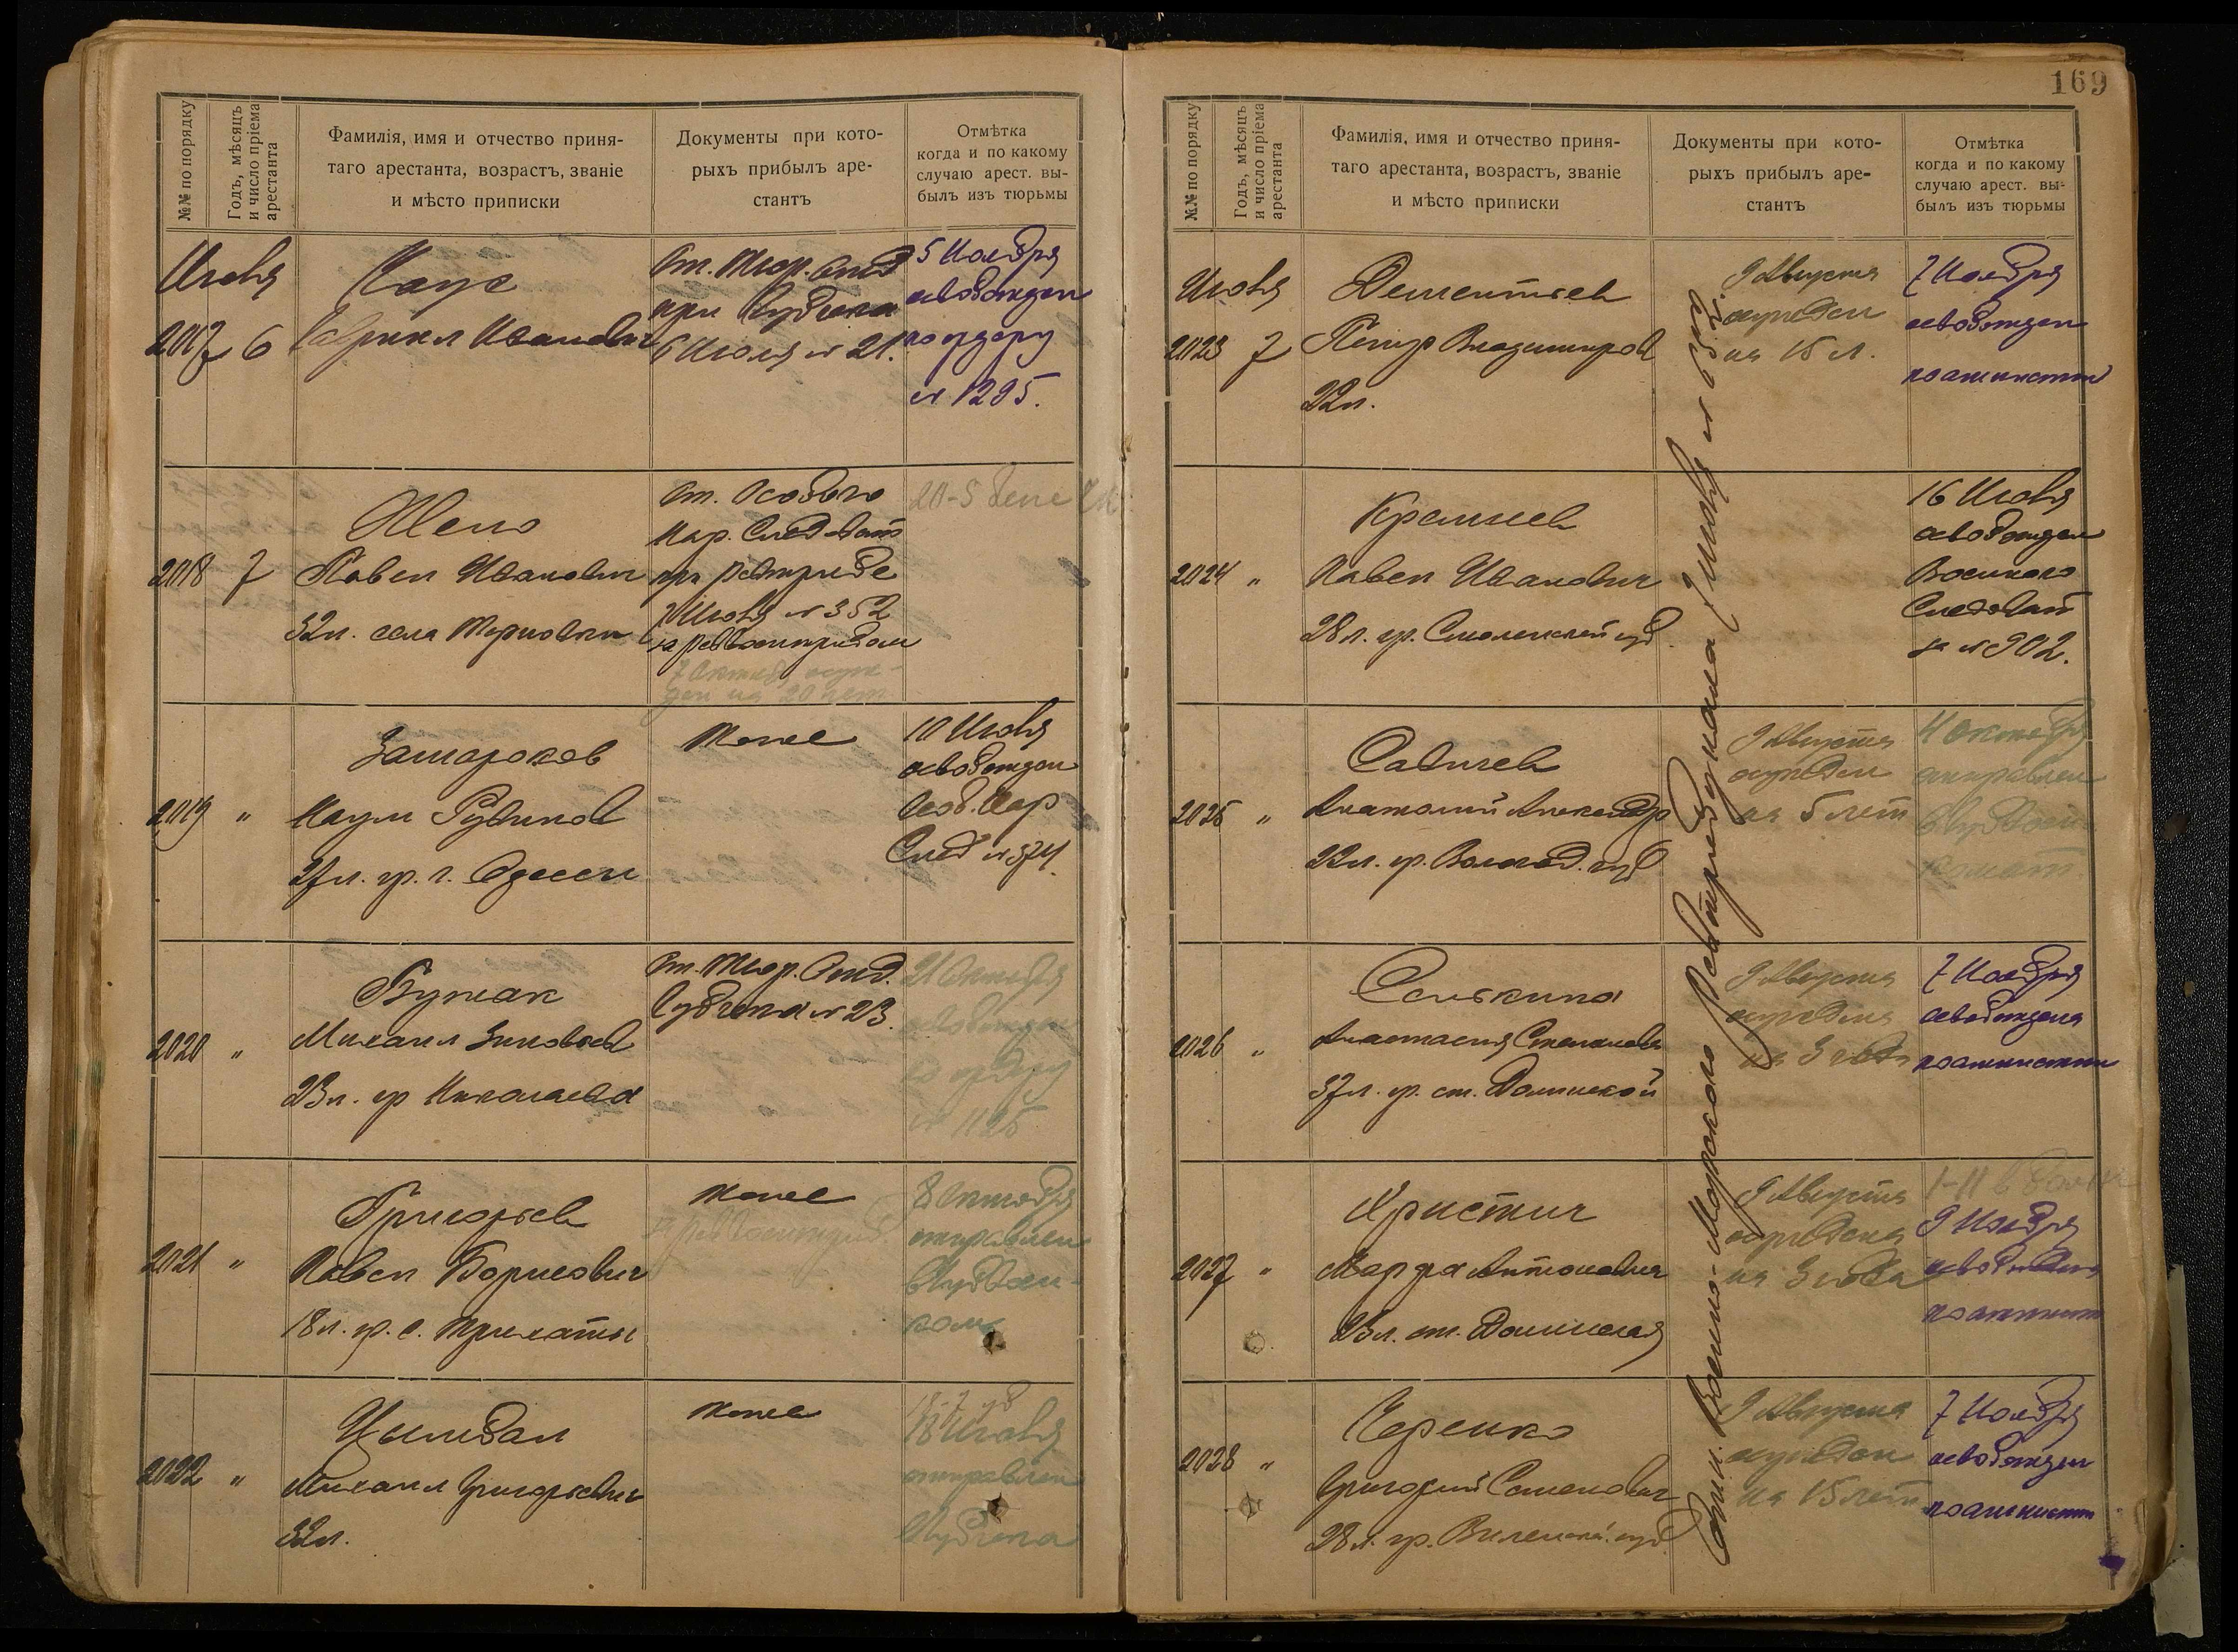 №№ по порядку
Годъ, мѣсяцъ
и число пріема
арестанта
Фамилія, имя и отчество приня-
таго арестанта, возрастъ, званіе
и мѣсто приписки
Документы при кото-
рыхъ прибылъ аре-
стантъ
Отмѣтка
когда и по какому
случаю арест. вы-
былъ изъ тюрьмы
Июль
2017 6
Иванович
От. Тюр. отд
при Губчека
6 Июля № 21.
5 Ноября
освобожден
по ордеру
№ 1295.
2018 7
Павел Иванович
32 л. села Терновки
От. Особого
Нар. Следоват
при Ревтриб
7 Июля № 352
7 Октяб осуж-
ден на 20 лет
20-5
2019 "
Замароков
Наум Рувинов
27 л. гр. г. Одессы
Тоже
10 Июля
освобожден
Нар
След № 374.
2020 "
Михаил Зиновьев
23 л. гр Николаева
От. Тюр. Отд.
Губчека № 23.
21 Октября
освобожден
по ордеру
№ 1125
2021 "
Григорьев
Павел Борисович
18 л. гр. с. Трихаты
Тоже
8 Октября
отправлен
2022 "
Цымбал
Михаил Григорьевич
32 л.
Тоже
18-7
18 Июля
отправлен
Губчека
169
№№ по порядку
Годъ, мѣсяцъ
и число пріема
арестанта
Фамилія, имя и отчество приня-
таго арестанта, возрастъ, званіе
и мѣсто приписки
Документы при кото-
рыхъ прибылъ аре-
стантъ
Отмѣтка
когда и по какому
случаю арест. вы-
былъ изъ тюрьмы
Военно-Морского Ревтребунала 7 Июля №
Июля
2023 7
Дементьев
Петр Владимиров
22 л.
9 Августа
осужден
на 15 л.
7 Ноября
освобожден
по амнистии
2024 "
Павел Иванович
28 л. гр. Смоленской губ.
16 Июля
освобожден
Военного
Следоват
№ 902.
2025 "
Савичев
Анатолий Александр
22 л. гр. Волог. губ
9 Августа
осужден
на 5 лет
4 октября
отправлен
2026 "
Сенькина
Анастасия Степановна
37 л. гр. ст. Долинской
9 Августа
осуждена
на 3 года
7 Ноября
освобождена
по амнистии
2027 "
Христич
Марфа Антоновна
23 л. ст. Долинская
9 Августа
осуждена
на 3 года
1-11
9 Ноября
освобождена
по амнист
2028 "
Черенко
Григорий Семенович
28 л. гр. Виленской губ
9 Августа
осужден
на 15 лет
7 Ноября
освобожден
по амнистии